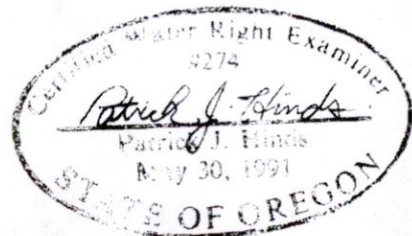 Certified Water Right Examiner
#274
Patrick J. Hinds
Patrick J. Hinds
May 30, 1991
STATE OF OREGON